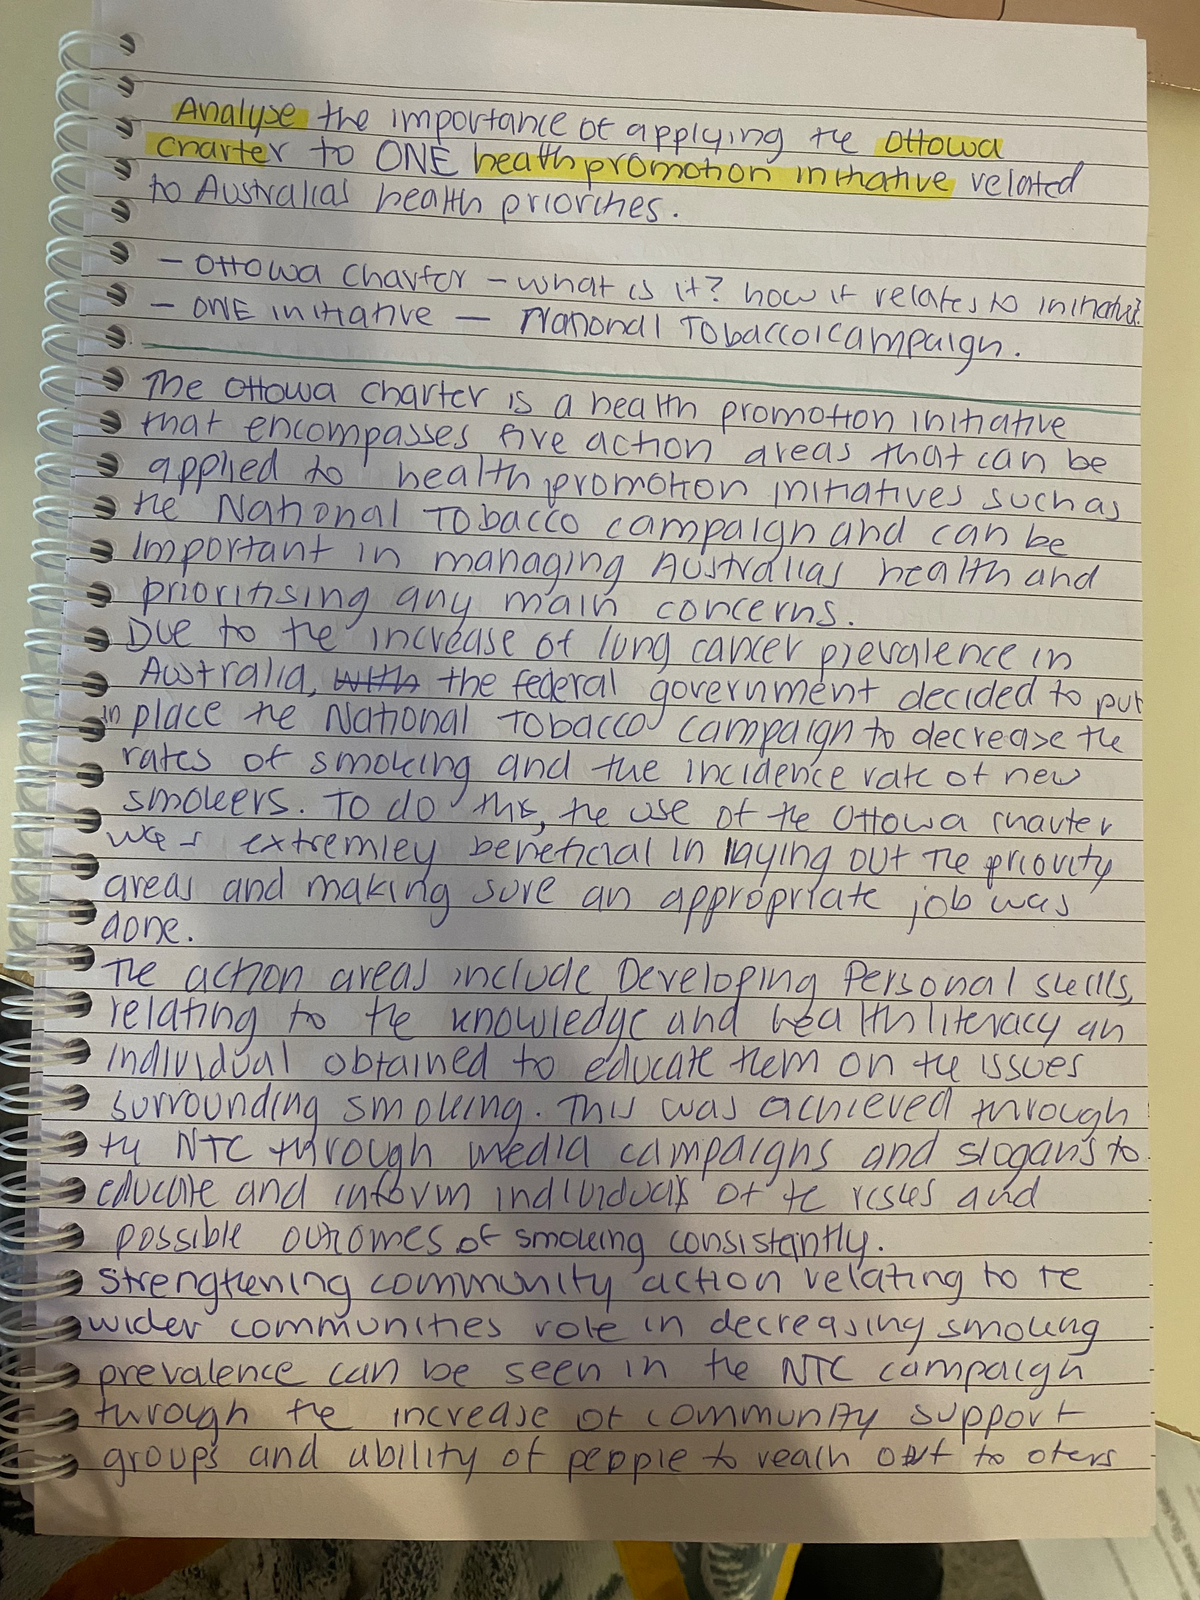 Analyse the importance of applying the Ottowa
Charter to ONE health promotion initiative related
to Australias health priorities.
- Ottowa Charter - what is it? how it relates to initiative?
- ONE initiative - National Tobacco campaign.
The Ottowa Charter is a health promotion initiative
that encompasses five action areas that can be
applied to health promotion initiatives such as
the National Tobacco campaign and can be
important in managing Australias health and
prioritising any main concerns.
Due to the increase of lung cancer prevalence in
Australia, with the federal government decided to put
in place the National Tobacco campaign to decrease the
rates of smoking and the incidence rate of new
smokers. To do this, the use of the Ottowa charter
was extremley beneficial in laying out the priority
areas and making sure an appropriate job was
done.
The action areas include Developing Personal skills,
relating to the knowledge and health literacy an
individual obtained to educate them on the issues
surrounding smoking. This was achieved through
the NTC through media campaigns and slogans to
educate and inform individuals of the risks and
possible outcomes of smoking consistantly.
Strengthening community action relating to the
wider communities role in decreasing smoking
prevalence can be seen in the NTC campaign
through the increase of community support
groups and ability of people to reach out to others